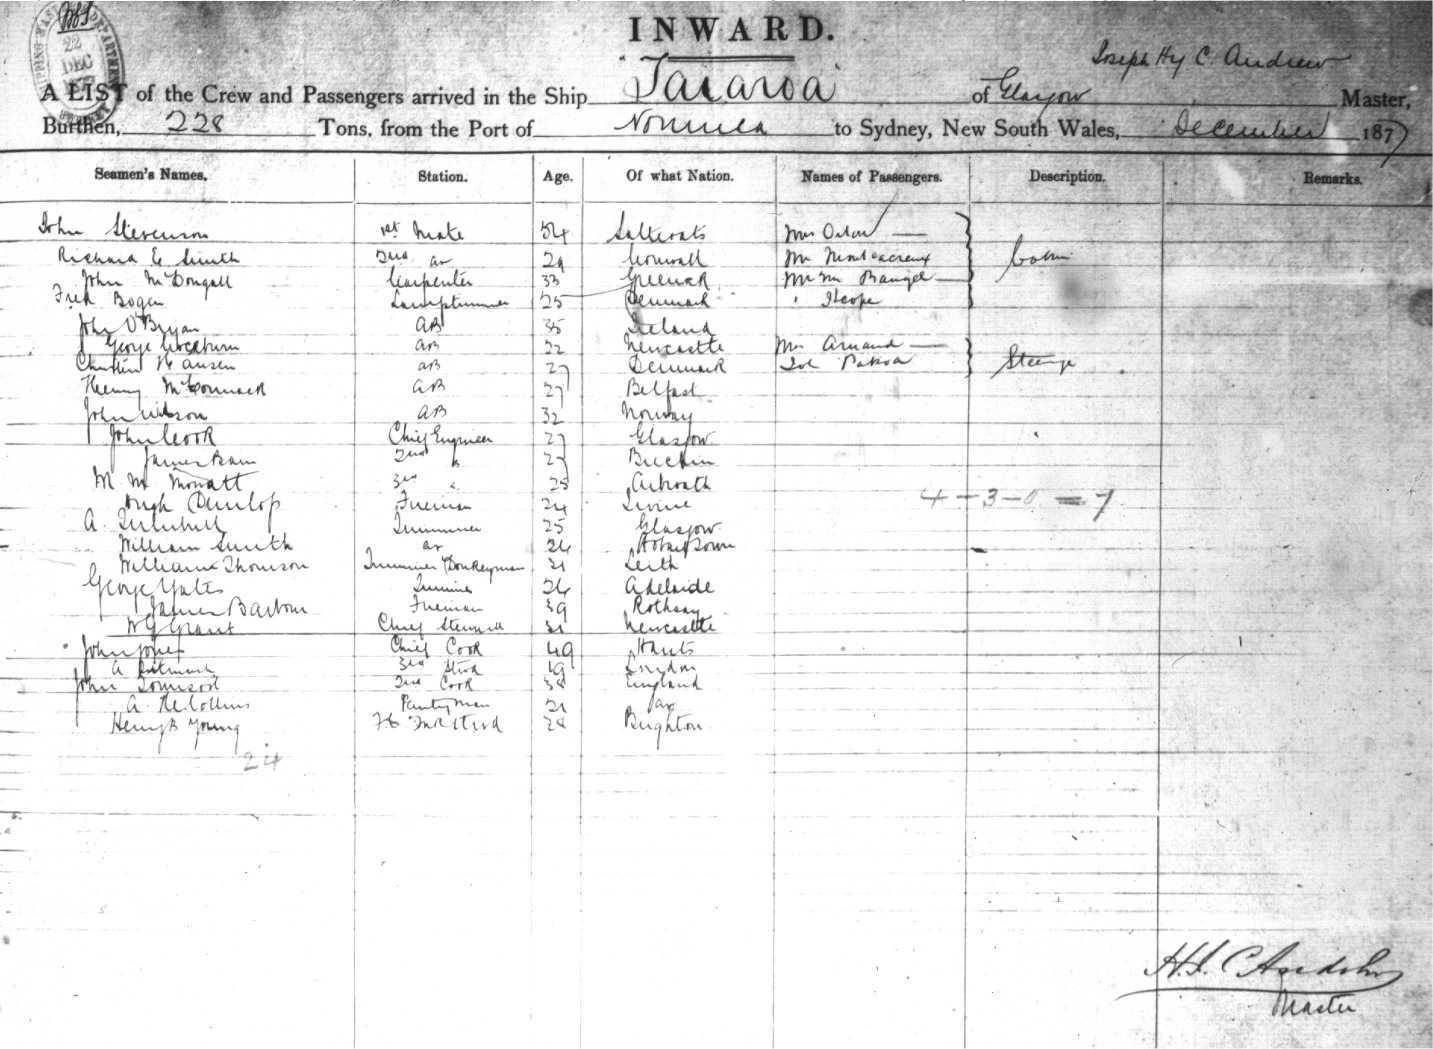 22
DEC
INWARD.
Joseph Hy C. Andrew
A LIST of the Crew and Passengers arrived in the Ship "Tararoa" of Glasgow Master,
Burthen, 228 Tons, from the Port of Noumea to Sydney, New South Wales, December 1877
Seamen's Names. Station. Age. Of what Nation. Names of Passengers. Description. Remarks.
John Stevenson 1st Mate 54 Saltcoats Mrs —
Richard E Smith 2nd do 29 Cornwall Mr
John McDougall Carpenter 33 Greenock Mr —
Fred Bogen Lamptrimmer 25 Denmark
John O'Bryan AB 35 Ireland
George Cockburn AB 22 Newcastle Armand —
Hansen AB 27 Denmark Steerage
Henry McCormack AB 27 Belfast
John Wilson AB 32 Norway
John Cook Chief Engineer 27 Glasgow
James 2nd " 27 Brechin
3rd " 25 Arbroath
Hugh Dunlop Fireman 24 Irvine
4 - 3 - 0 = 7
A. Turnbull Trimmer 25 Glasgow
William Smith do 24 Hobart Town
William Thomson Trimmer & Donkeyman 21 Leith
George Yates Trimmer 24 Adelaide
James Barbour Fireman 39 Rothsay
W G Grant Chief Steward 31 Newcastle
John Jones Chief Cook 49 Hants
A 2nd Stwd 19 London
John 2nd Cook 38 England
A. Collins Pantryman 21 do
Henry B Young 28 Brighton
24
H. J. C Andrew
Master